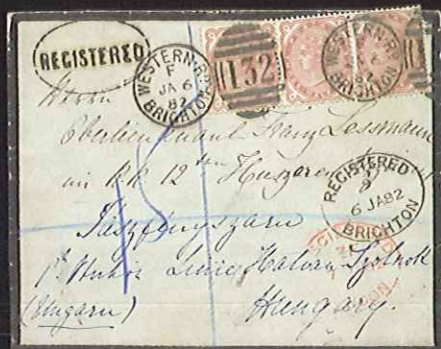 REGISTERED
WESTERN-RD
F
JA 6
82
BRIGHTON
132
82
BRIGHTON
Herrn
Oberlieutenant Franz Lessmann
im KK 12ten Huszaren
REGISTERED
6 JA82
BRIGHTON
Jászfényszaru
Linie Hatvan Szolnok
(Ungarn)
Hungary